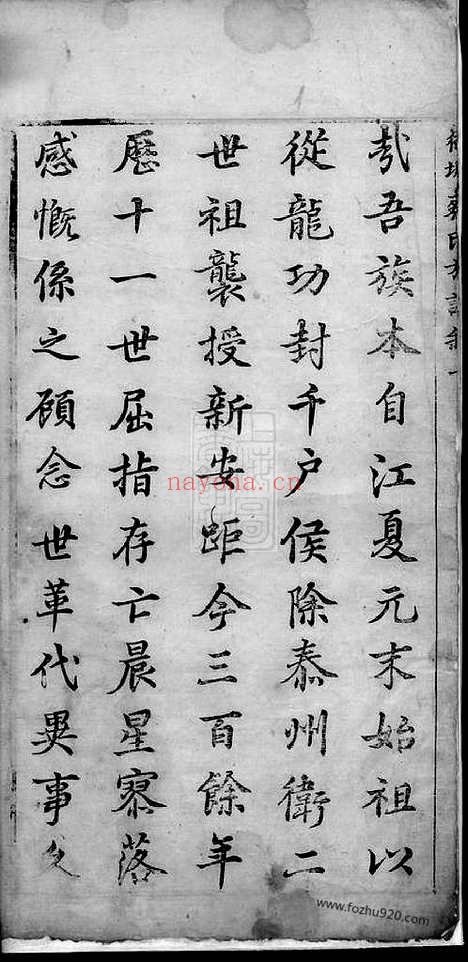 哉吾族本自江夏元末始祖以
從龍功封千户侯除泰州衛二
世祖襲授新安距今三百餘年
歷十一世屈指存亡晨星寥落
感慨係之顧念世革代異事久
nayona.cn
www.fozhu920.com